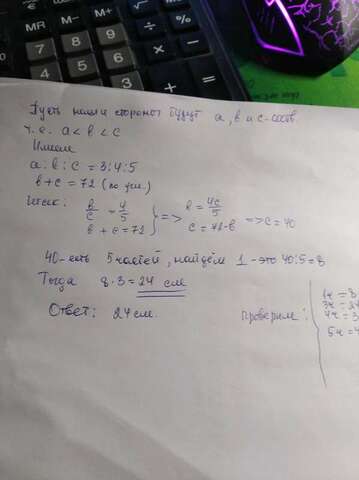 MR M- M+ ÷
7 8 9 % √
4 5 6 × -
2 3
Пусть наши стороны будут a, b и c - соотв.
т.е. a < b < c
Имеем
a : b : c = 3 : 4 : 5
b + c = 72 (по усл.)
Итак: b/c = 4/5 } => b = 4c/5 => c = 40
b + c = 72 c = 72 - b
40 - есть 5 частей, найдём 1 - это 40 : 5 = 8
Тогда 8 · 3 = 24 см
Ответ: 24 см.
Проверим:
1ч = 8
3ч = 2
4ч = 3
5ч = 4